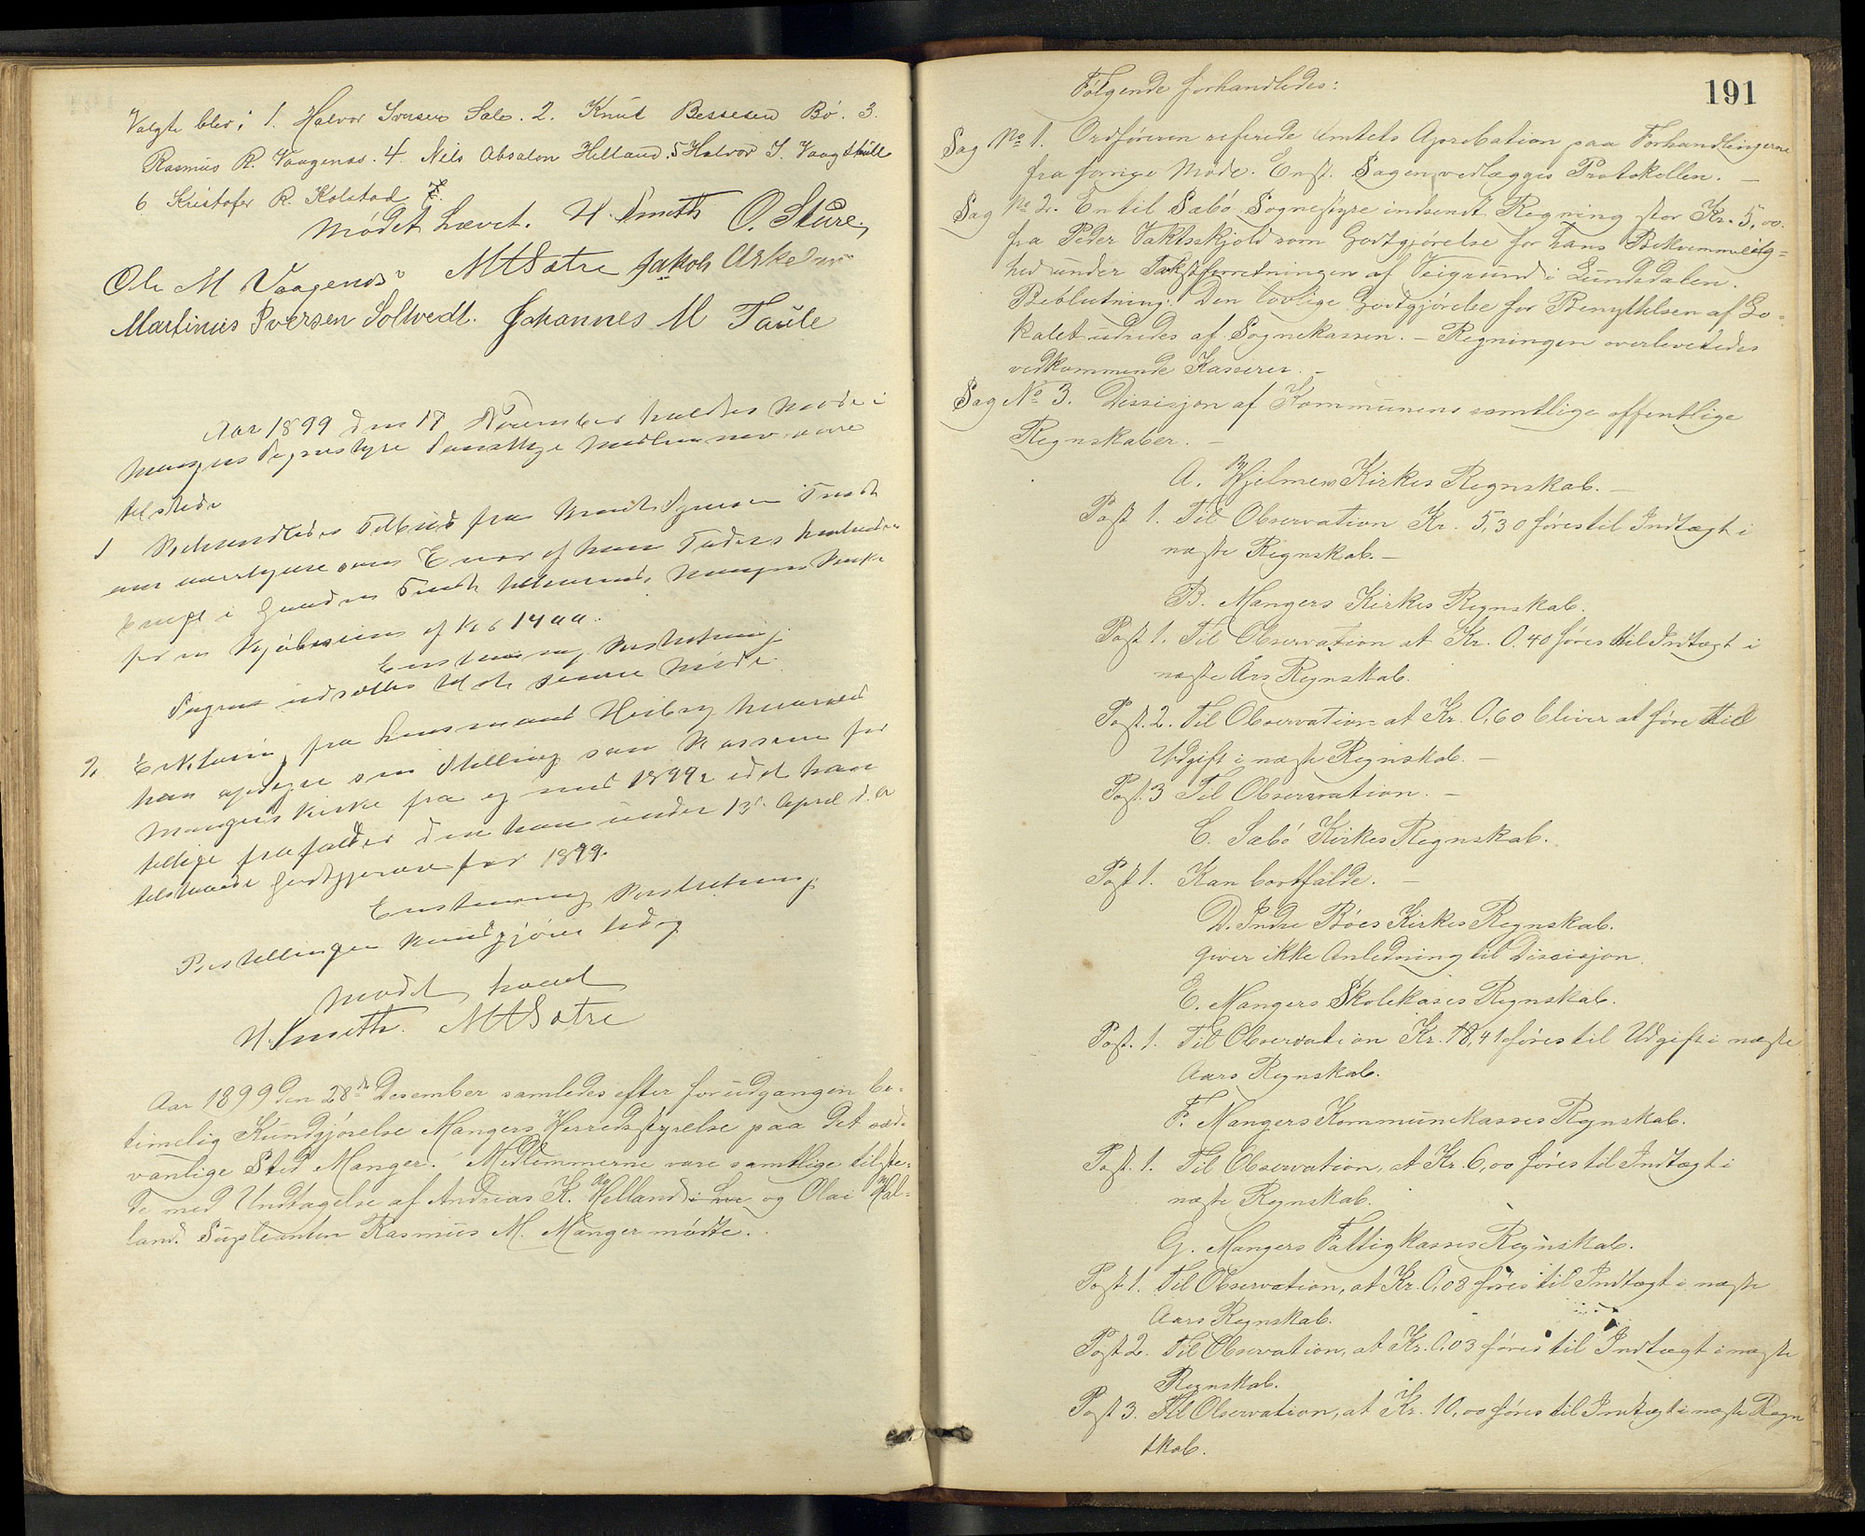 Valgte blev: 1. Halvor Iversen Sæle. 2. Knut Bessesen Bø. 3.
Rasmus R. Vaagenes. 4. Nils Absalon Helland. 5 Halvor J. Vaagthiill
6 Kristofer R. Kolstad
Mødet hævet. H. Smith O. Sture,
Ole M Vaagenes MHSætre Jakob Askeland
Martinus Iversen Soltvedt. Johannes M Taule
Aar 1899 den 17 November holdtes møde i
Mangers Sognestyre Samtlige Medlemmer vare
tilstede
1 Behandledes Tilbud fra
om
for en Kjøbesum af Kr 1400.
Enstemmig Beslutning:
Sagen udsættes til et senere Møde.
2. Erklæring fra Lensmand Heiberg hvorved
han opsiger sin Stilling som Kasserer for
Mangers Kirke fra og med 1899 idet han
tillige frafalder den ham under 13 April d. A
tilstaaede Godtgjørelse for 1899.
Enstemmig Beslutning:
Bestillingen kundgjøres ledig
Mødet hævet
H. Smith. MHSætre
Aar 1899 den 28de Desember samledes efter forudgangen be-
timelig Kundgjørelse Mangers Herredsstyrelse paa det sæd-
vanlige Sted Manger. Medlemmerne vare samtlige tilste-
de med Undtagelse af Andreas K. Helland og Olai Hal-
land. Supleanten Rasmus M. Manger mødte.
191
Følgende forhandledes:
Sag No 1. Ordføreren referede Amtets Aprobation paa Forhandlingerne
fra forrige Møde. Enst. Sagen vedlægges Protokollen. —
Sag No 2. En til Sæbø Sognestyre indsendt Regning stor Kr. 5,00
fra Peder Vaktskjold som Godtgjørelse for hans Bekvemmelig-
hed under Takstforretningen af Veigrund i Lundsdalen.
Beslutning: Den lovlige Godtgjørelse for Benyttelsen af Lo-
kalet udredes af Sognekassen. — Regningen overleveredes
vedkommende Kasserer. —
Sag No 3. Dessisjon af Kommunens samtlige offentlige
Regnskaber. —
A. Hjelmes Kirkes Regnskab. —
Post 1. Til Observation Kr. 5,30 føres til Indtægt i
næste Regnskab. —
B. Mangers Kirkes Regnskab.
Post 1. Til Observation at Kr. 0.40 føres til Indtægt i
næste Års Regnskab.
Post. 2. Til Observation at Kr. 0,60 bliver at føre til
Udgift i næste Regnskab. —
Post. 3 Til Observation. —
C. Sæbø Kirkes Regnskab.
Post 1. Kan bortfalde. —
D. Indre Bøes Kirkes Regnskab.
giver ikke Anledning til Dissisjon.
E. Mangers Skolekases Regnskab.
Post. 1. Til Observation Kr. 18,41 føres til Udgift i næste
Aars Regnskab.
F. Mangers Kommunekasses Regnskab.
Post. 1. Til Observation, at Kr. 6,00 føres til Indtægt i
næste Regnskab.
G. Mangers Fattigkasses Regnskab.
Post 1. Til Observation, at Kr. 0,08 føres til Indtægt i næste
Aars Regnskab.
Post 2. Til Observation, at Kr. 0,03 føres til Indtægt i næste
Regnskab.
Post 3. Til Observation, at Kr. 10,00 føres til Indtægt i næste Regn
skab.